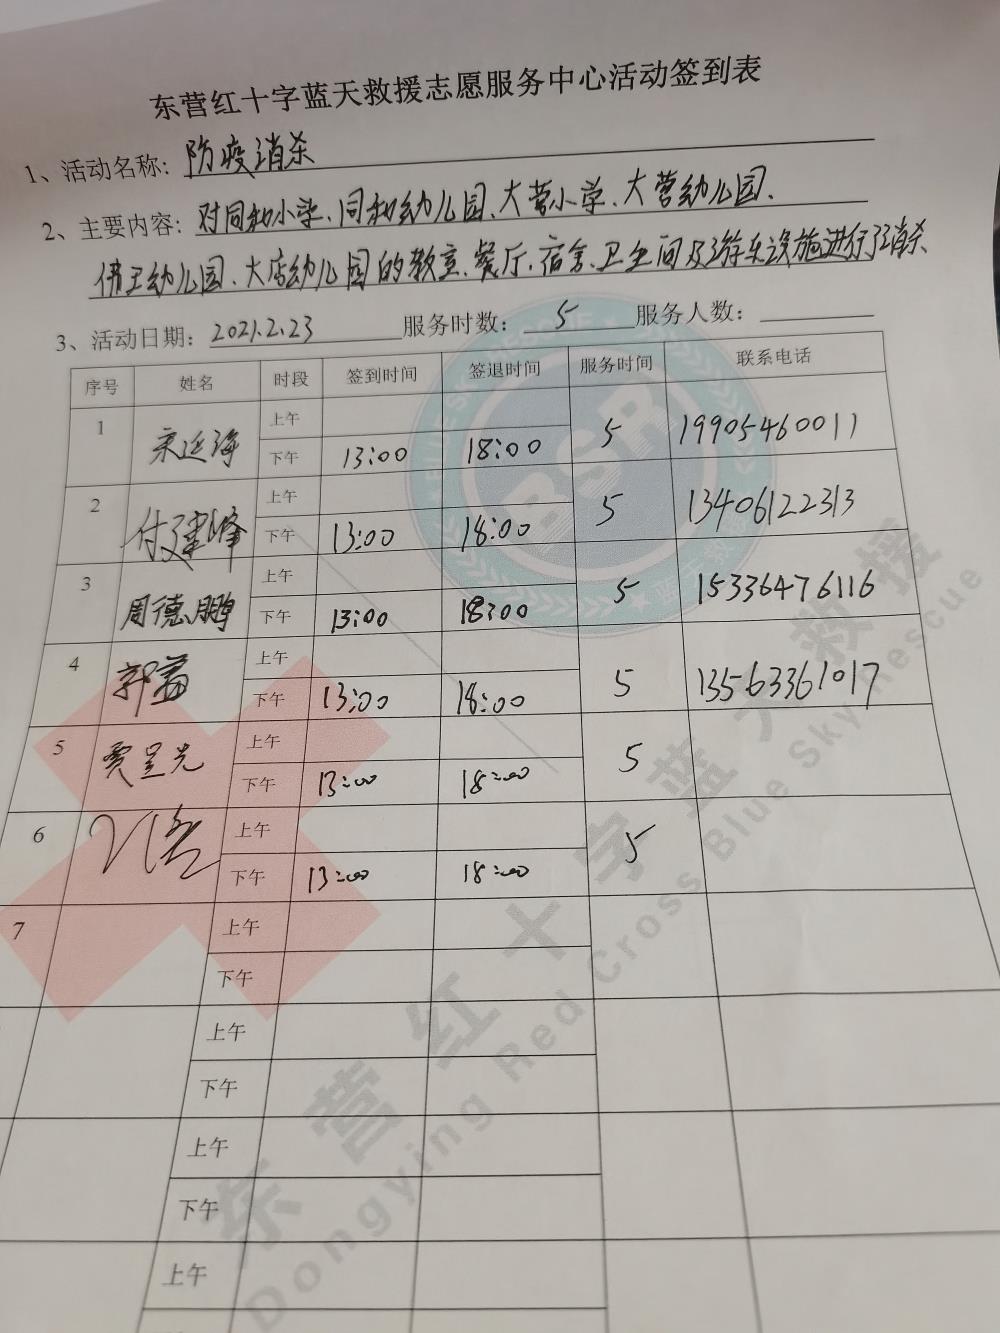 东营红十字蓝天救援志愿服务中心活动签到表
1、活动名称: 防疫消杀
2、主要内容: 对同和小学、同和幼儿园、大营小学、大营幼儿园、
佛王幼儿园、大店幼儿园的教室、餐厅、宿舍、卫生间及游乐设施进行了消杀
3、活动日期: 2021.2.23 服务时数: 5 服务人数:
序号 姓名 时段 签到时间 签退时间 服务时间 联系电话
1 宋延海 上午
下午 13:00 18:00 5 19905460011
2 付建峰 上午
下午 13:00 18:00 5 13406122313
3 周德鹏 上午
下午 13:00 18:00 5 15336476116
4 郭益 上午
下午 13:00 18:00 5 13563361017
5 贾呈光 上午
下午 13:00 18:00 5
6 上午
下午 13:00 18:00 5
7 上午
下午
上午
下午
上午
下午
上午
BSR
东营红十字蓝天救援
Dongying Red Cross Blue Sky Rescue